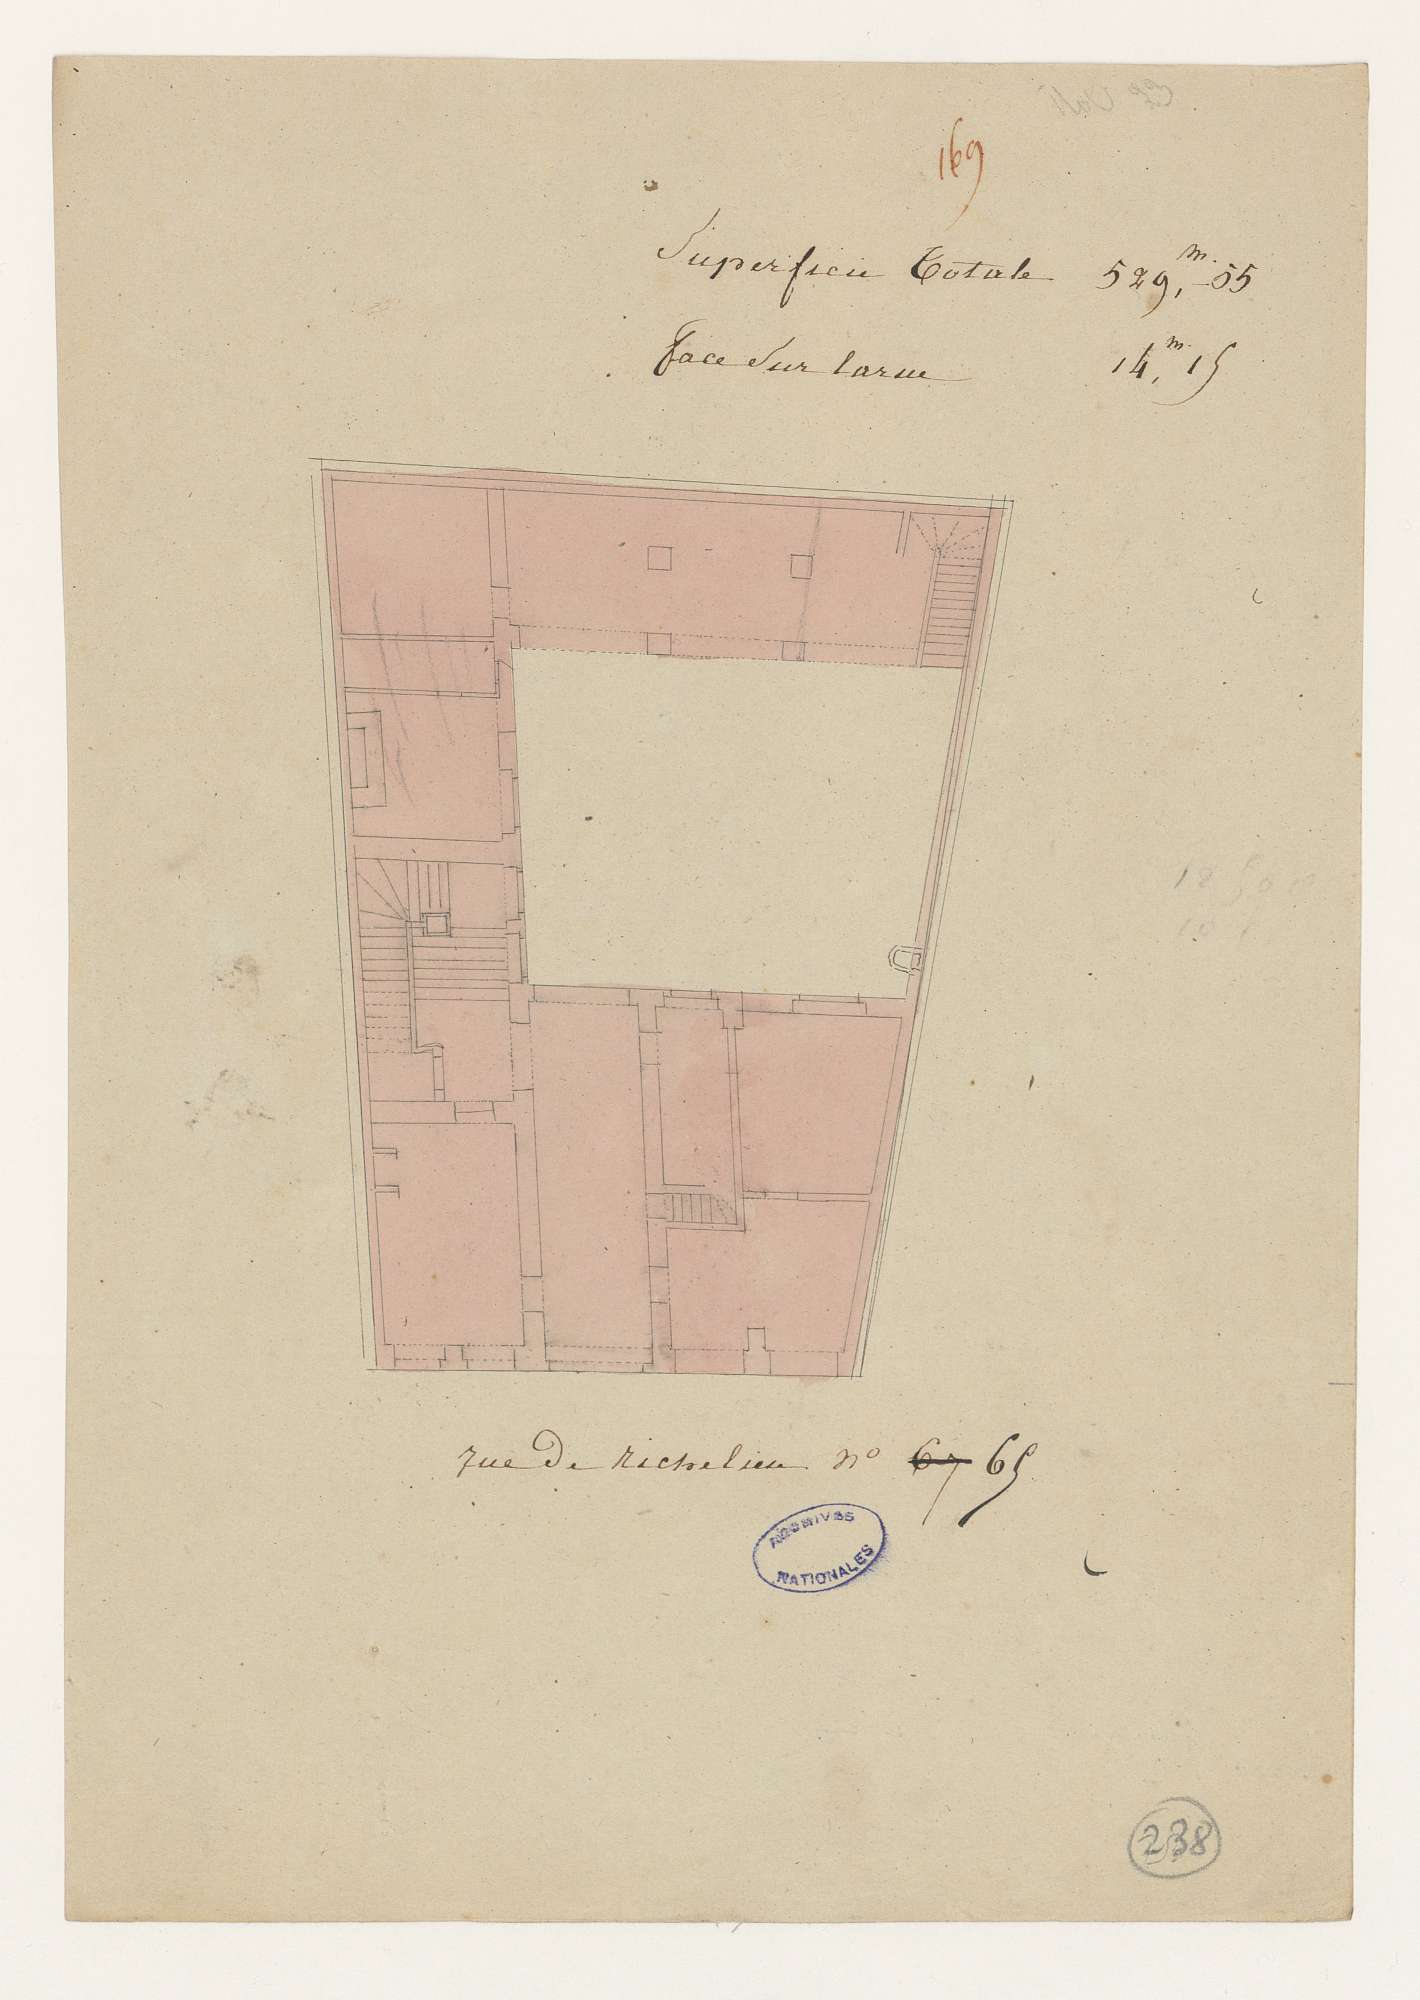 169
Superficie Totale 529,m.55
face Sur larue 14,m.15
rue De Richelieu. No 67 65
ARCHIVES
NATIONALES
238